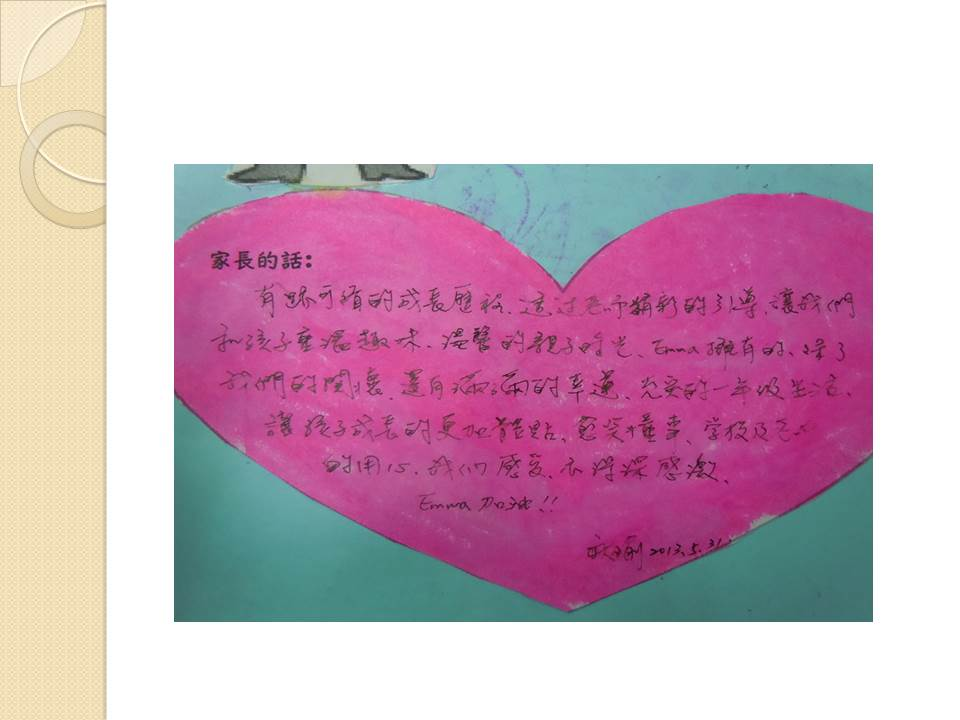 家長的話:
有跡可循的成長歷程、透过老师精彩的引導、讓我們
和孩子重溫趣味、溫馨的親子時光、Emma擁有的、除了
我們的関懷、還有滿滿的幸運、充实的一年級生活、
讓孩子成長的更加體貼、懂事、学校及老
的用心、我们感受、亦深深感激、
Emma 加油!!
2013.5.31